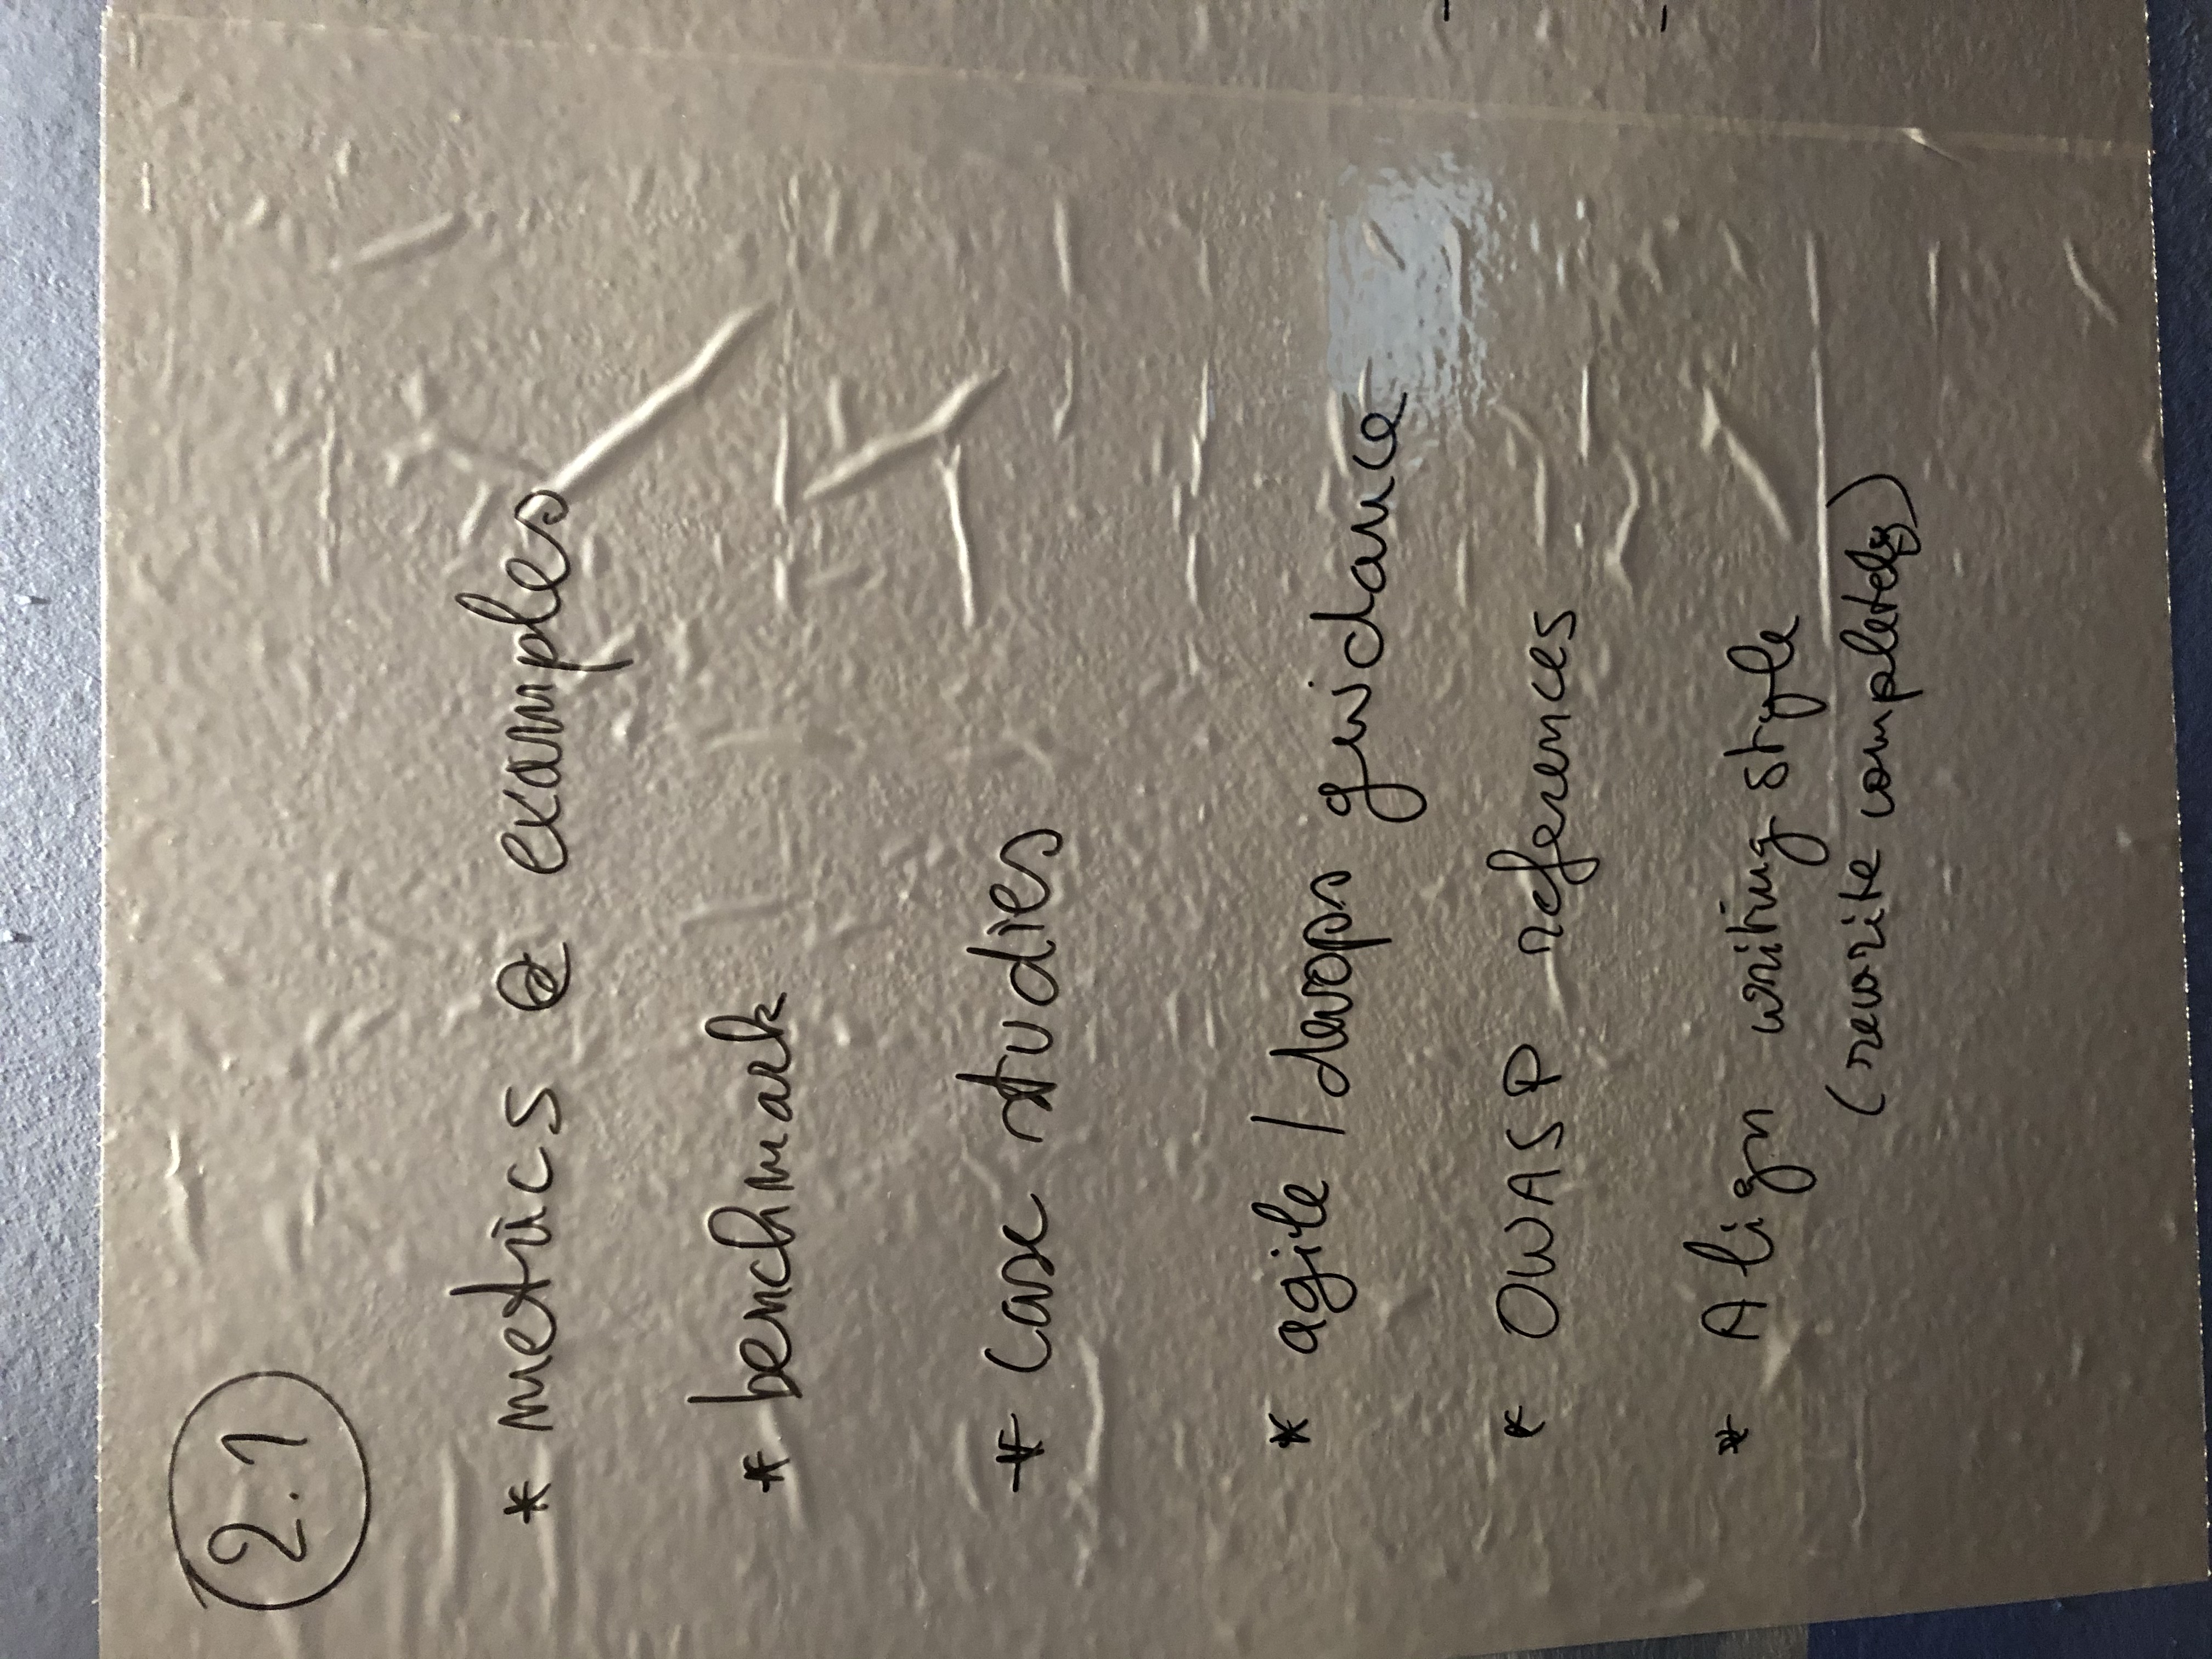 2.1
* metrics & examples
* benchmark
* case studies
* agile / devops guidance
* OWASP references
* Align writing style
(rewrite completely)